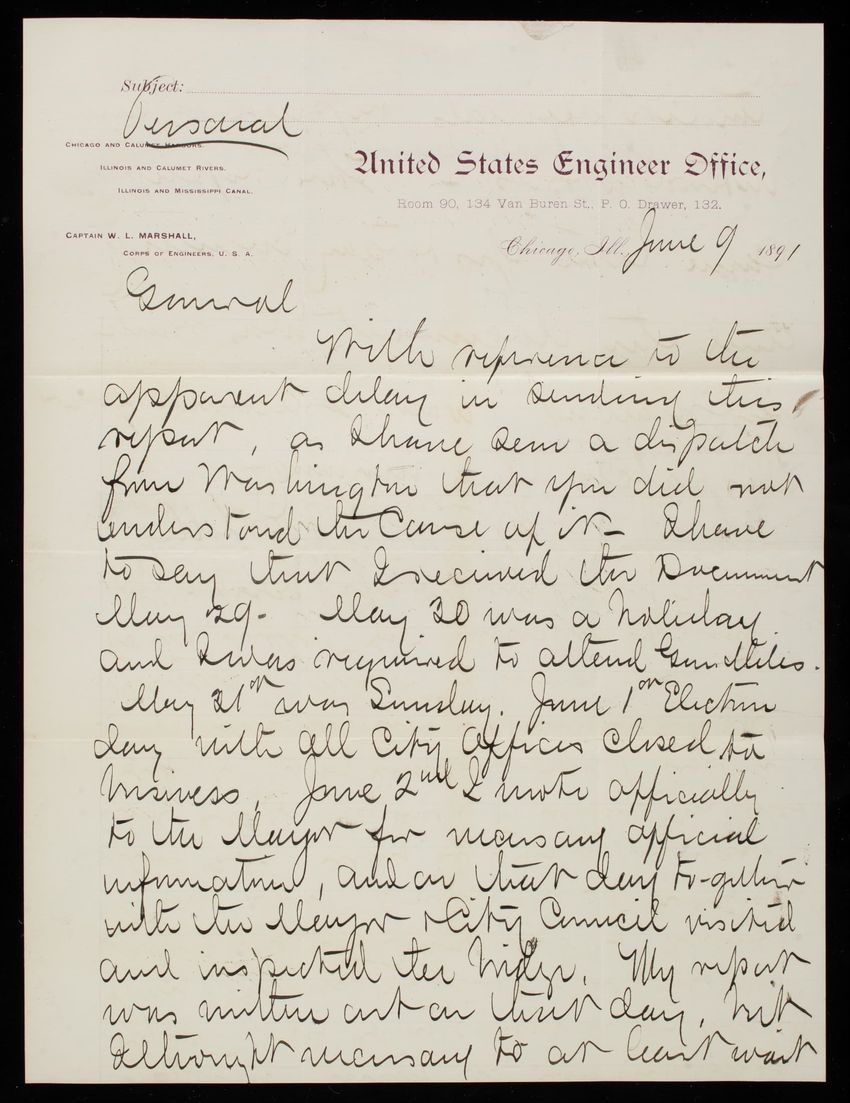 Subject:
Personal
CHICAGO AND CALUMET HARBORS.
ILLINOIS AND CALUMET RIVERS.
ILLINOIS AND MISSISSIPPI CANAL.
United States Engineer Office,
Room 90, 134 Van Buren St., P. O. Drawer, 132.
CAPTAIN W. L. MARSHALL,
CORPS OF ENGINEERS, U. S. A.
Chicago, Ill., June 9 1891
General
With reference to the
apparent delay in sending this
report, as I have seen a dispatch
from Washington that you did not
understand the Cause of it - I have
to say that I received the Document
May 29 - May 30 was a holiday
and I was required to attend Gen Miles.
May 31st was Sunday. June 1st Election
day with all City Offices closed to
business. June 2nd I wrote officially
to the Mayor for necessary official
information, and on that day to-gether
with the Mayor & City Council visited
and inspected the bridge. My report
was written out on that day, but
I thought necessary to at least wait